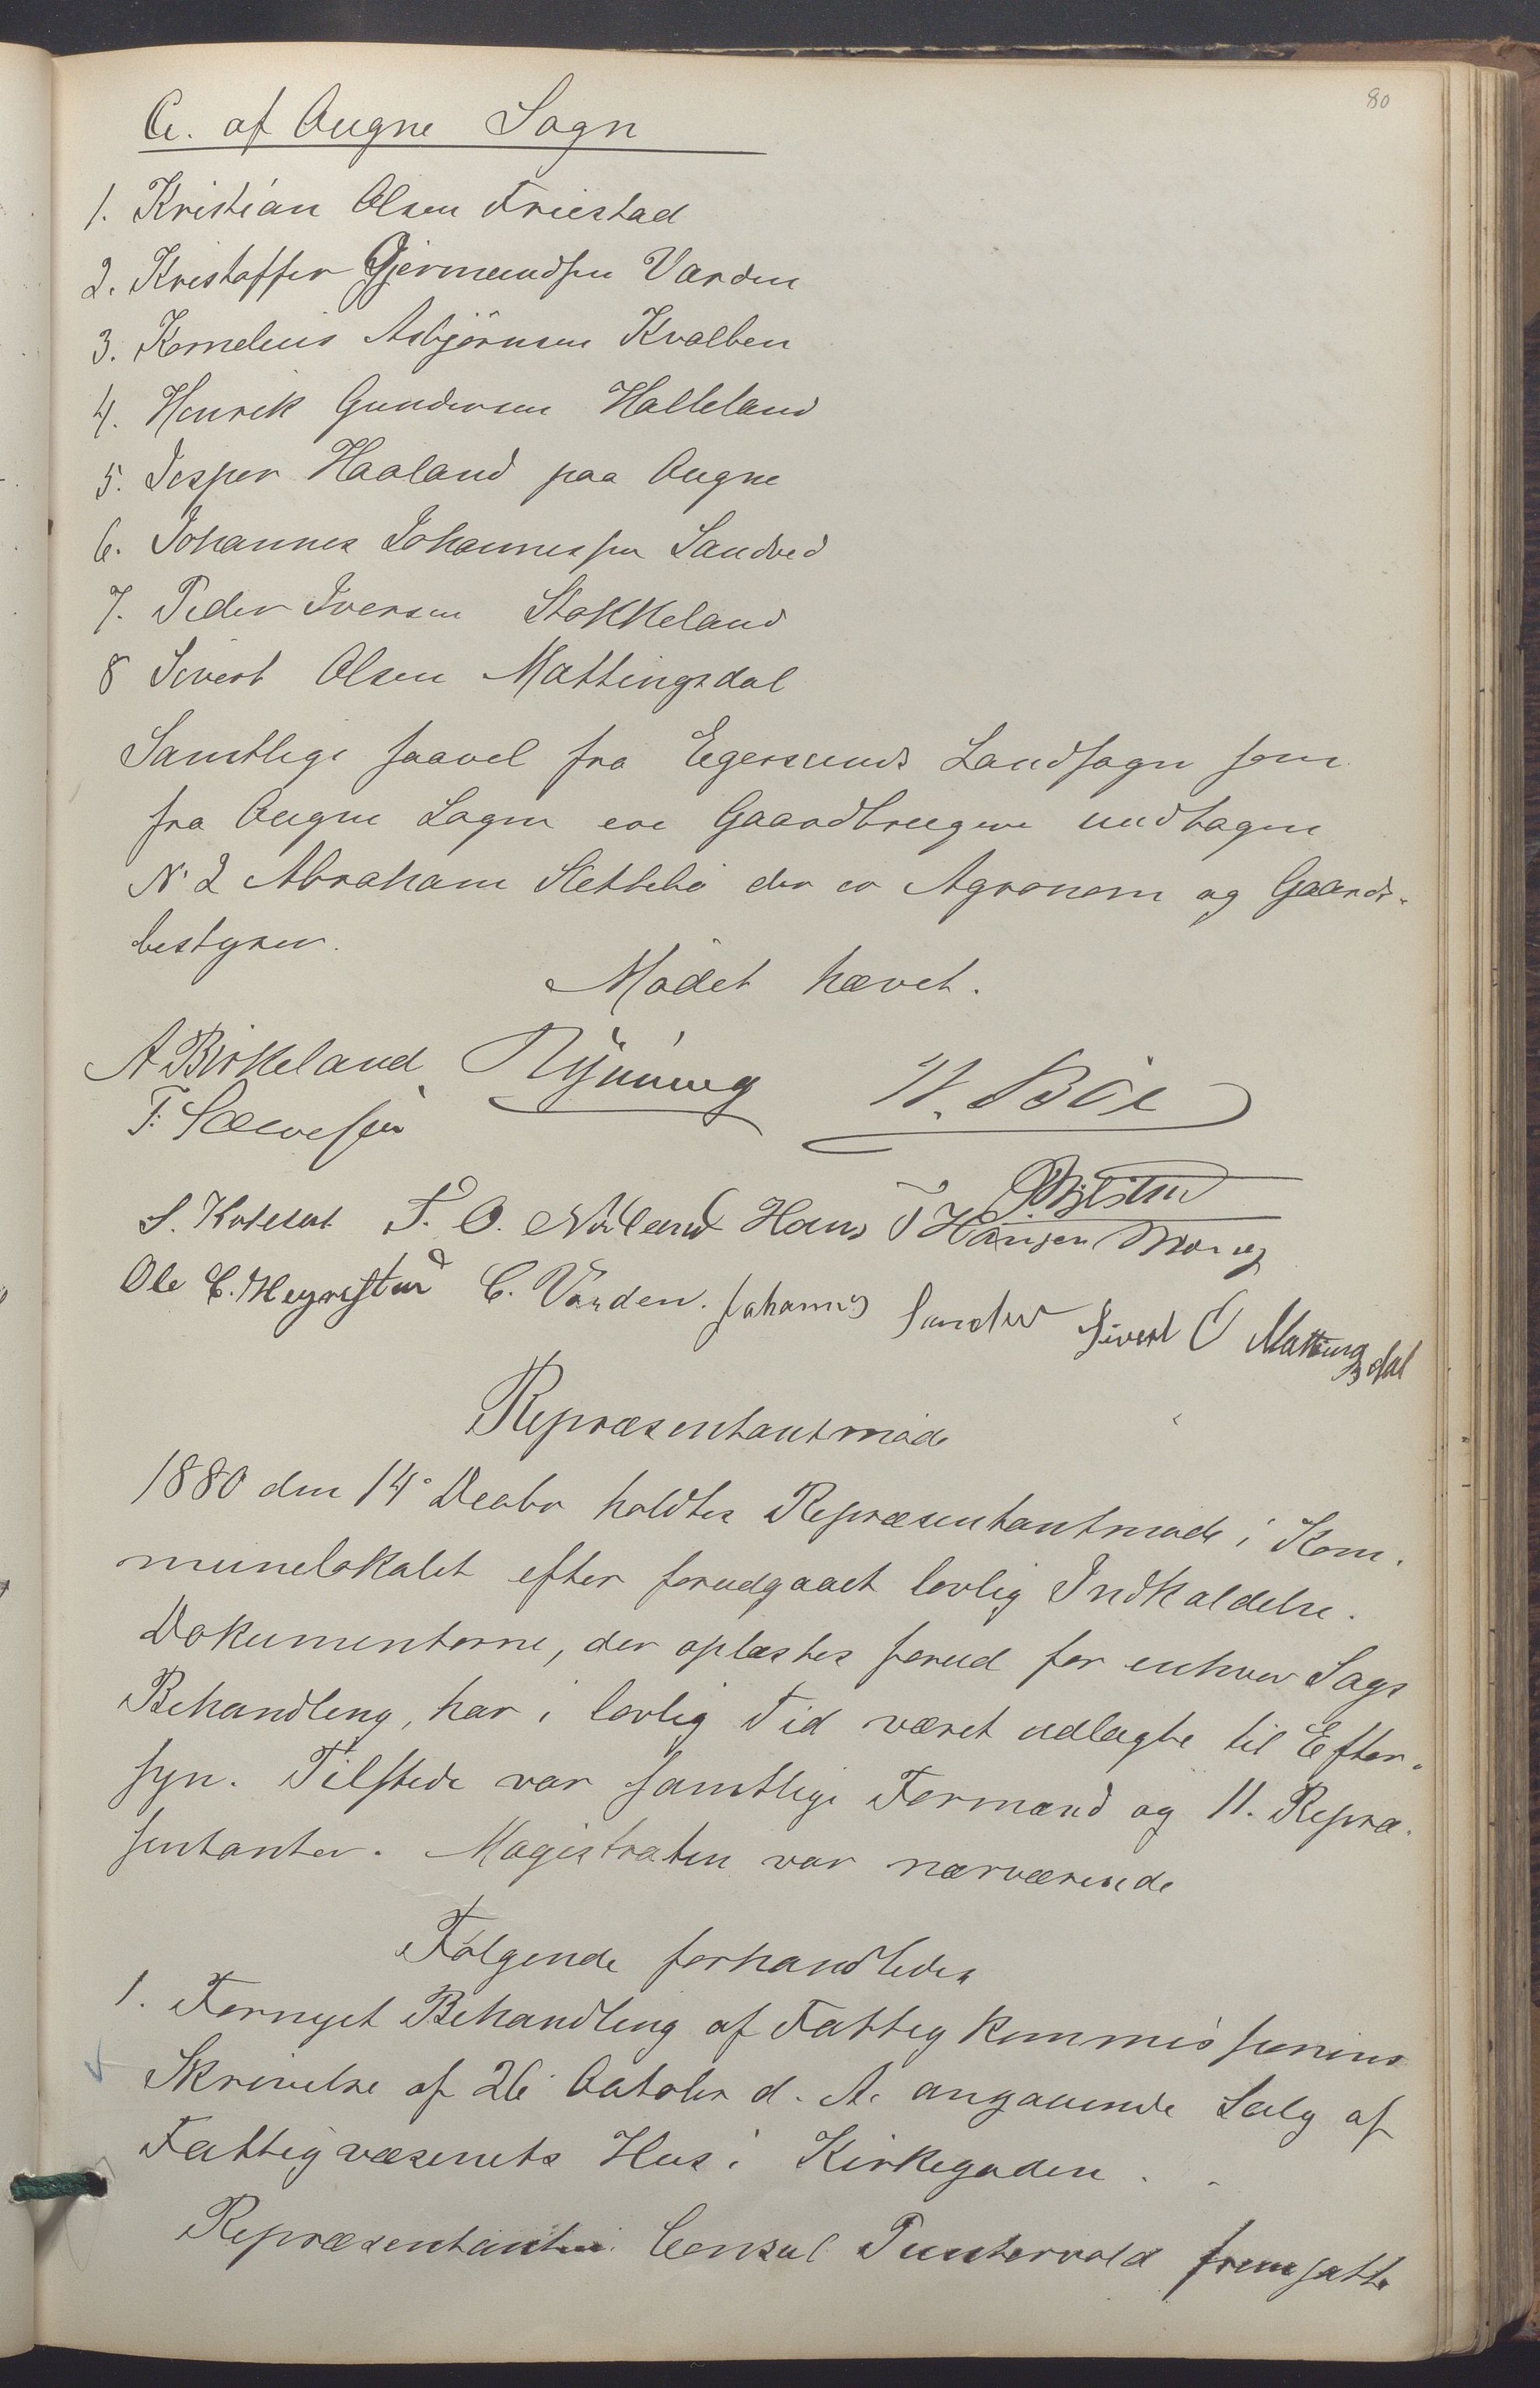 80
C. af Ougne Sogn
1. Kristian Olsen Friestad
2. Kristoffer Gjermundsen Varden
3. Kornelius Asbjørnsen Kvalben
4. Henrik Gundersen Halleland
5. Jesper Haaland paa Ougne
6. Johannes Johannessen Sandved
7. Peder Iversen Stokkeland
8 Sivert Olsen Mattingsdal
Samtlige saavel fra Egersunds Landsogn som
fra Ougne Sogn ere Gaardbrugere undtagen
N. 2 Abraham Slettebø der er Agronom og Gaards-
bestyrer.
Mødet hævet.
A Birkeland W. Böe
T.
S. T. O. Hans T Hansen
Ole C. C. Varden. Johannes Sivert O Mattingsdal
Repræsentantmøde
1880 den 14 Decbr holdtes Repræsentantmøde i Kom-
munelokalet efter forudgaaet lovlig Indkaldelse.
Dokumenterne, der oplæstes forud for enhver Sags
Behandling, har i lovlig Tid været udlagte til Efter-
syn. Tilstede var samtlige Formænd og 11. Repræ-
sentanter. Magistraten var nærværende
Følgende forhandledes
1. Fornyet Behandling af Fattigkommissionens
Skrivelse af 26 October d. A. angaaende Salg af
Fattigvæsenets Hus i Kirkegaden.
Repræsentanten Consul Puntervold fremsatte